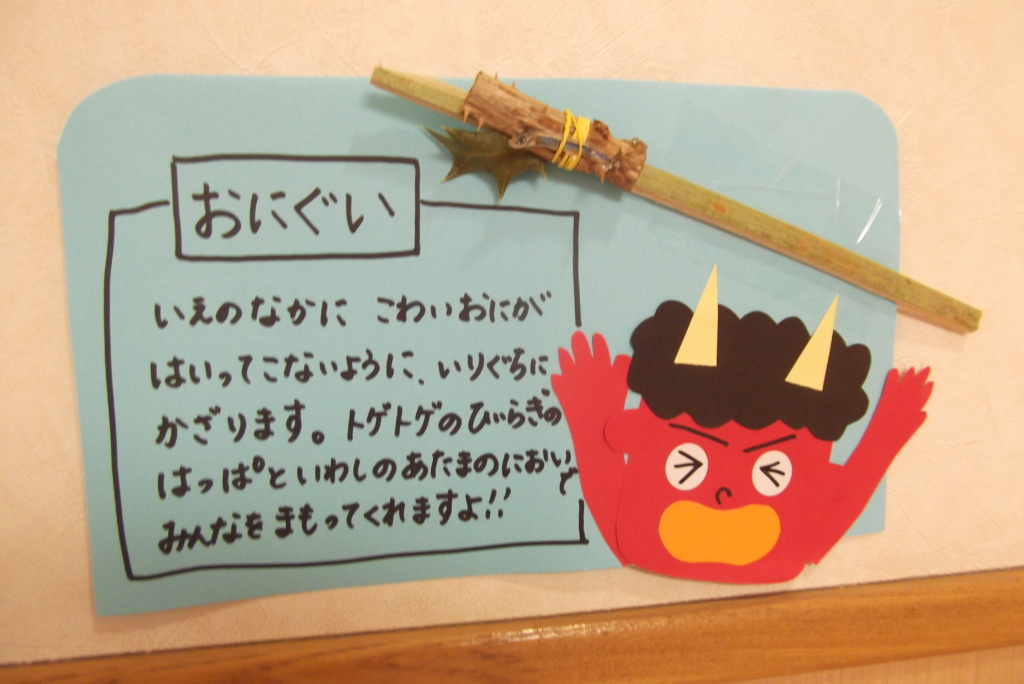 おにぐい
いえのなかに こわいおにが
はいってこないように、いりぐちに
かざります。トゲトゲのひいらぎの
はっぱといわしのあたまのにおいで
みんなをまもってくれますよ!!